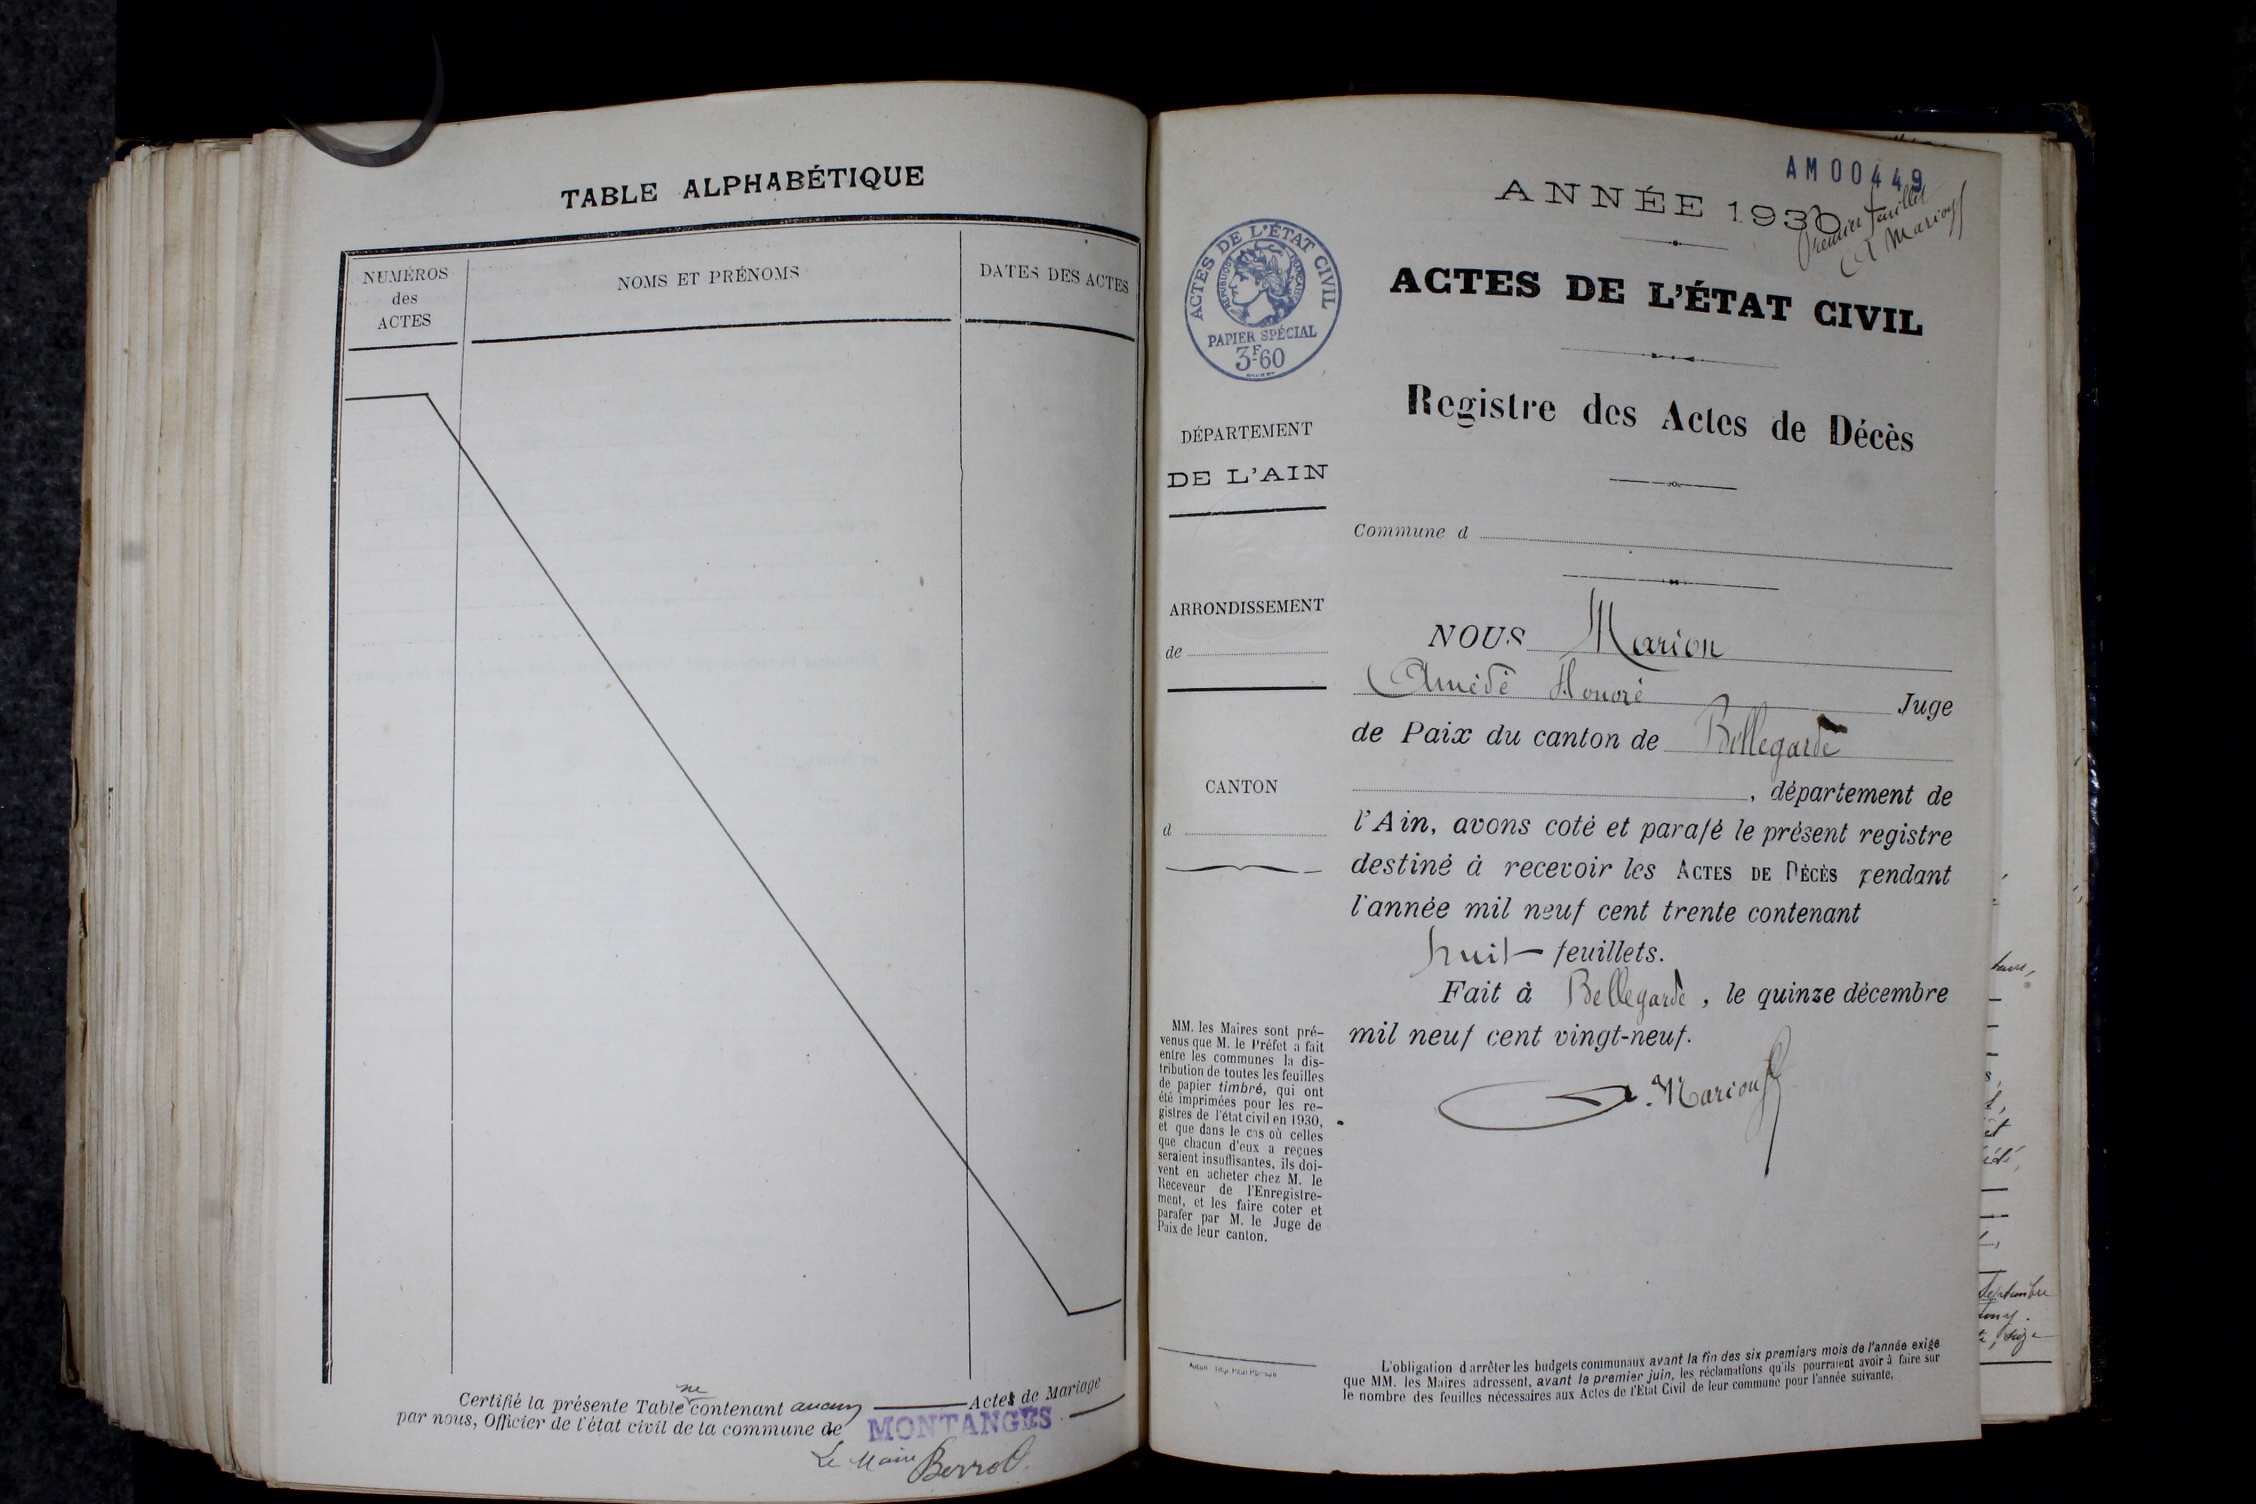 TABLE ALPHABÉTIQUE
NUMÉROS
des
ACTES
NOMS ET PRÉNOMS
DATES DES ACTES
Certifié la présente Table ne contenant aucun Actes de Mariage
par nous, Officier de l'état civil de la commune de MONTANGES
Le Maire
AM00449
ANNÉE 1930
Premier feuillet
A Marion
ACTES DE L'ÉTAT CIVIL
RÉPUBLIQUE FRANÇAISE
PAPIER SPÉCIAL
3F60
ACTES DE L'ÉTAT CIVIL
Registre des Actes de Décès
DÉPARTEMENT
DE L'AIN
ARRONDISSEMENT
de
CANTON
d
MM. les Maires sont pré-
venus que M. le Préfet a fait
entre les communes la dis-
tribution de toutes les feuilles
de papier timbré, qui ont
été imprimées pour les re-
gistres de l'état civil en 1930,
et que dans le cas où celles
que chacun d'eux a reçues
seraient insuffisantes, ils doi-
vent en acheter chez M. le
Receveur de l'Enregistre-
ment, et les faire coter et
parafer par M. le Juge de
Paix de leur canton.
Commune d
NOUS Marion
Amédé Honoré Juge
de Paix du canton de Bellegarde
, département de
l'Ain, avons coté et parafé le présent registre
destiné à recevoir les ACTES DE DÉCÈS pendant
l'année mil neuf cent trente contenant
huit feuillets.
Fait à Bellegarde, le quinze décembre
mil neuf cent vingt-neuf.
A. Marion
L'obligation d'arrêter les budgets communaux avant la fin des six premiers mois de l'année exige
que MM. les Maires adressent, avant le premier juin, les réclamations qu'ils pourraient avoir à faire sur
le nombre des feuilles nécessaires aux Actes de l'Etat Civil de leur commune pour l'année suivante.